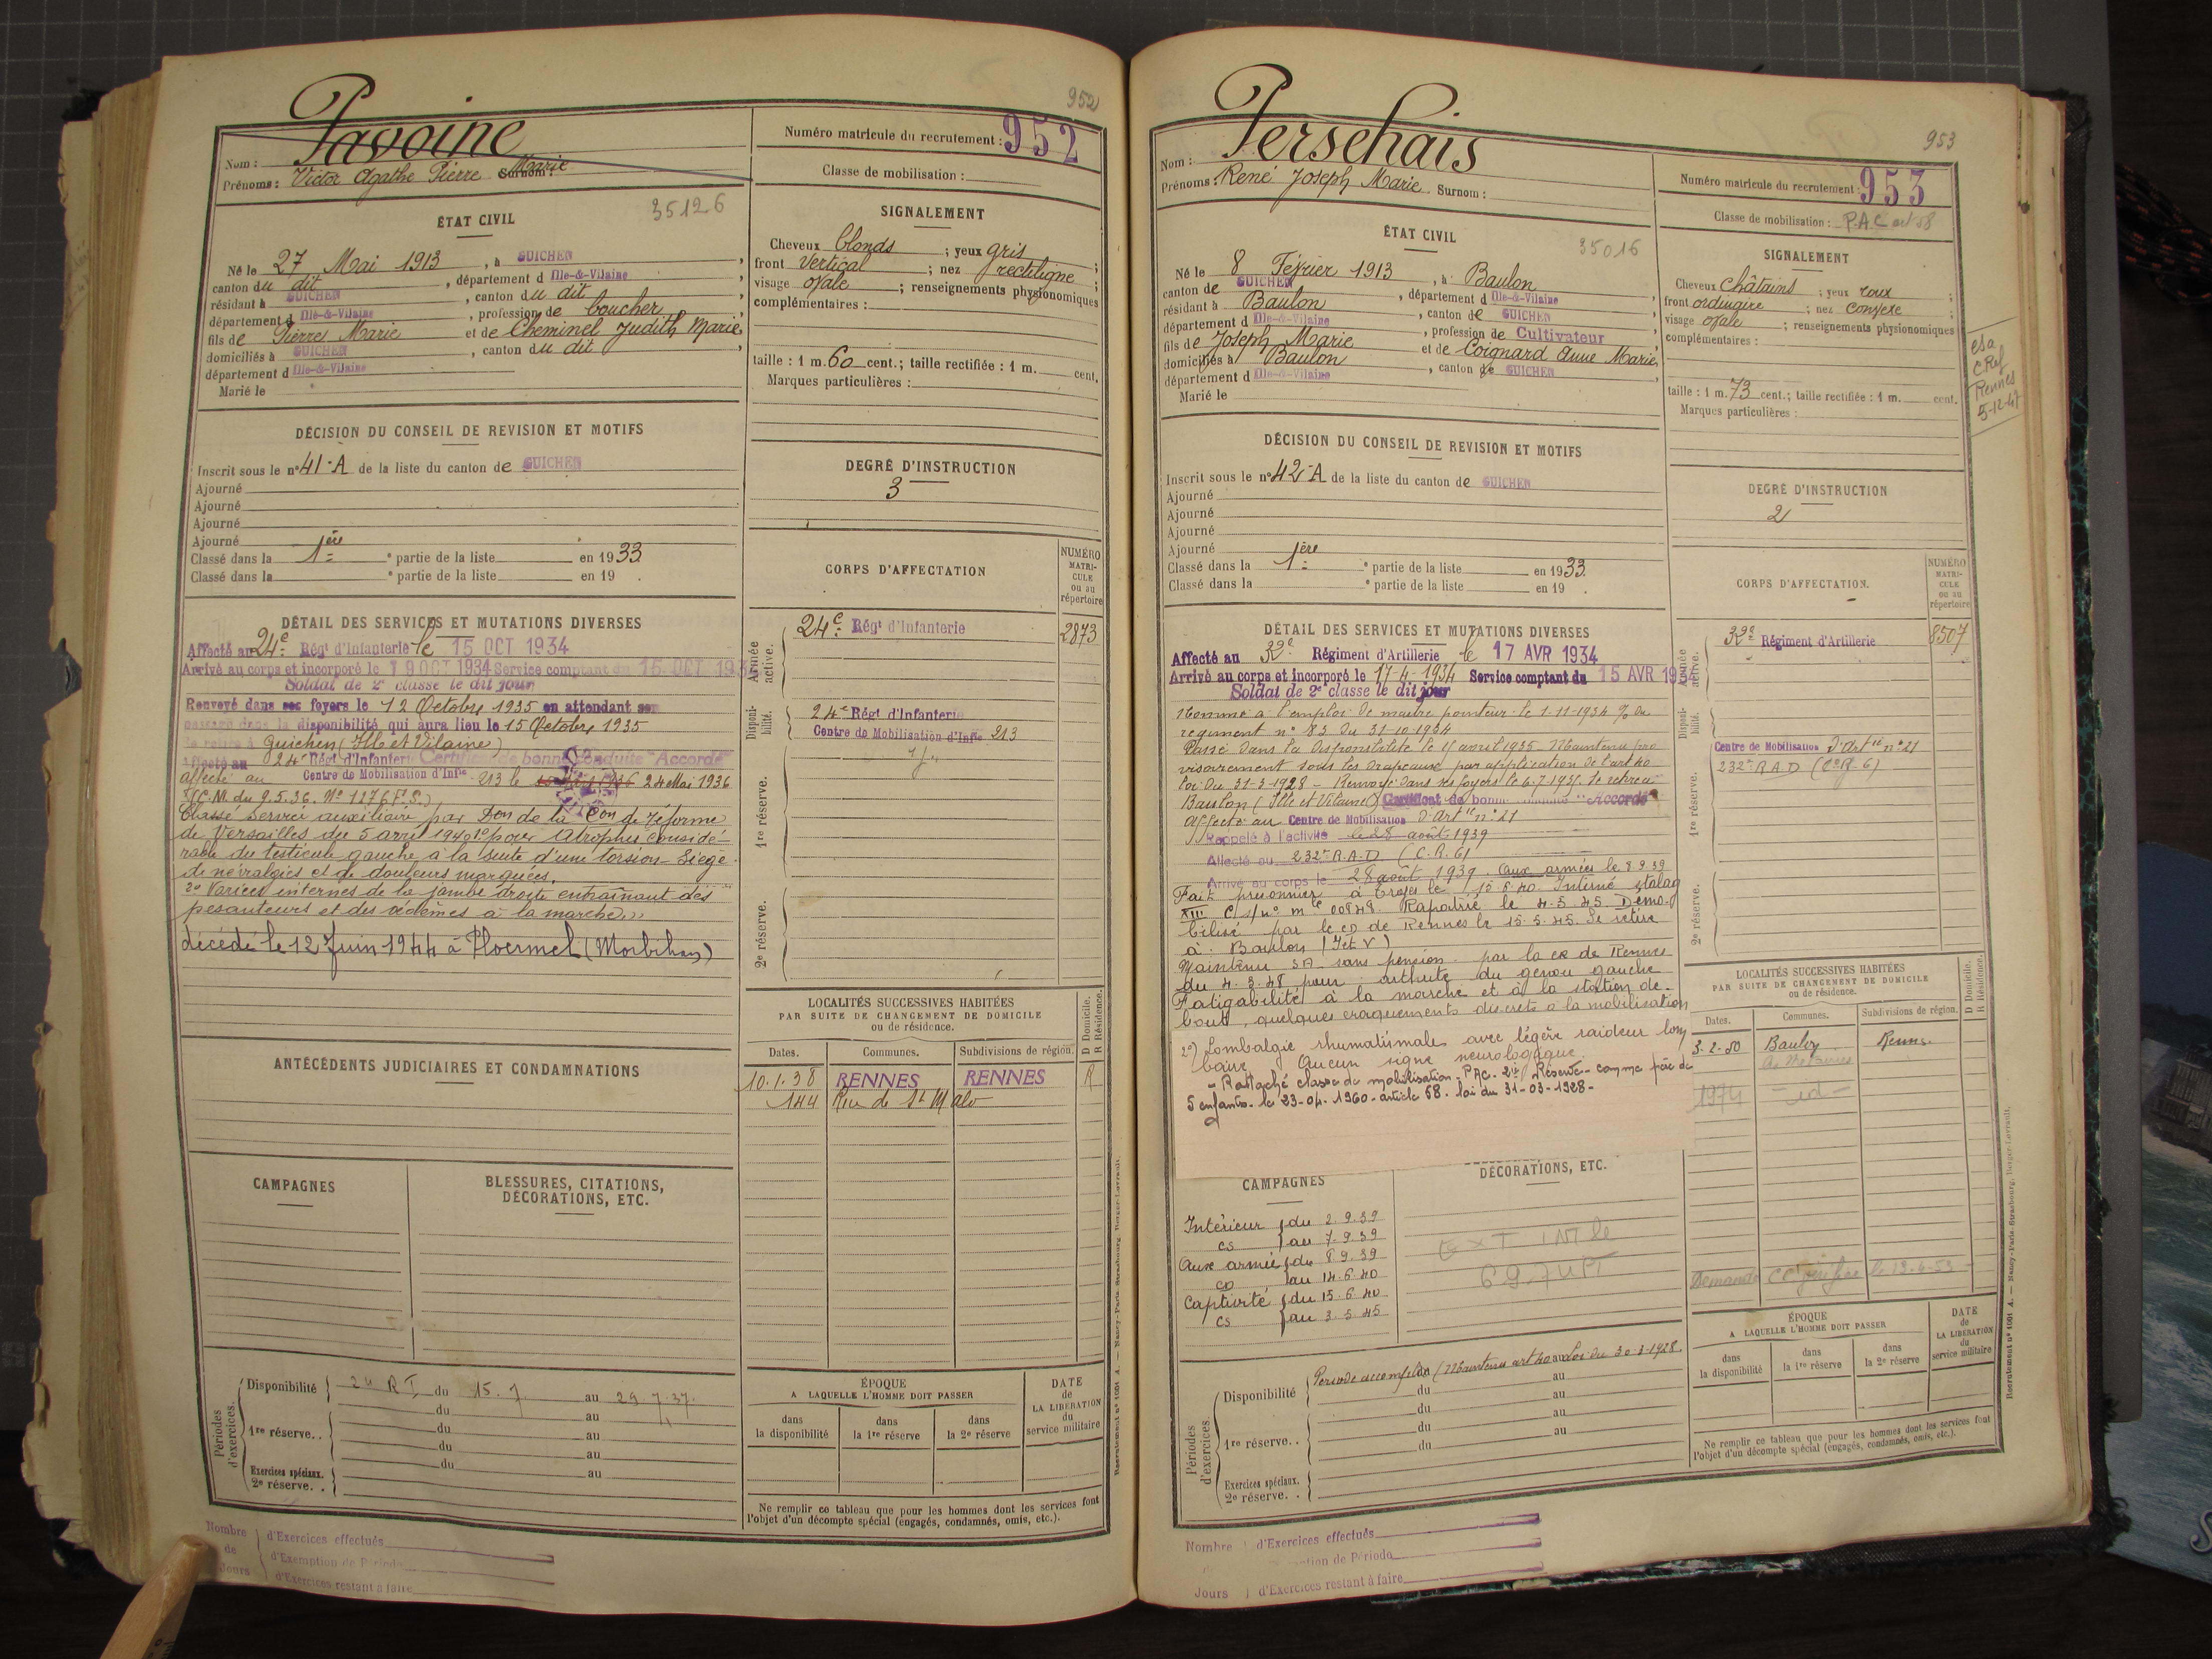 952
Pavoine
Nom :
Prénoms : Victor Agathe Pierre Marie Surnom :
Numéro matricule du recrutement : 952
Classe de mobilisation :
ÉTAT CIVIL
35126
Né le 27 Mai 1913, à GUICHEN,
canton du dit, département d Ille-&-Vilaine,
résidant à GUICHEN, canton du dit,
département d Ille-&-Vilaine, profession de boucher,
fils de Pierre Marie et de Cheminel Judith Marie,
domiciliés à GUICHEN, canton du dit,
département d Ille-&-Vilaine
Marié le
SIGNALEMENT
Cheveux blonds ; yeux gris ;
front vertical ; nez rectiligne ;
visage ovale ; renseignements physionomiques
complémentaires :
taille : 1 m. 60 cent.; taille rectifiée : 1 m. cent.
Marques particulières :
DÉCISION DU CONSEIL DE REVISION ET MOTIFS
Inscrit sous le n° 41-A de la liste du canton de GUICHEN
Ajourné
Ajourné
Ajourné
Ajourné
Classé dans la 1ère e partie de la liste en 1933.
Classé dans la e partie de la liste en 19 .
DEGRÉ D'INSTRUCTION
3
CORPS D'AFFECTATION
NUMÉRO
MATRI-
CULE
ou au
répertoire
Armée active.
24e Régt d'Infanterie 2873
Disponibilité.
24e Régt d'Infanterie
Centre de Mobilisation d'Infie 213
1re réserve.
2e réserve.
DÉTAIL DES SERVICES ET MUTATIONS DIVERSES
Affecté au 24e Régt d'Infanterie le 15 OCT 1934
Arrivé au corps et incorporé le 19 OCT 1934 Service comptant du 15 OCT 193
Soldat de 2e classe le dit jour
Renvoyé dans ses foyers le 12 Octobre 1935 en attendant son
passage dans la disponibilité qui aura lieu le 15 Octobre 1935
Se retire à Guichen (Ille et Vilaine)
Affecté au 24e Régt d'Infanterie Certificat de bonne conduite "Accordé"
affecté au Centre de Mobilisation d'Infie 213 le 24 Mai 1936
(C.M. du 9.5.36. N° 1276 P.S.)
Classé Service auxiliaire par Don de la Con de réforme
de Versailles du 5 avril 1940 1° pour Atrophie considé-
rable du testicule gauche à la suite d'une torsion. Siège
de névralgies et de douleurs marquées.
2° Varices internes de la jambe droite entraînant des
pesanteurs et des œdèmes à la marche
décédé le 12 Juin 1944 à Ploermel (Morbihan)
ANTÉCÉDENTS JUDICIAIRES ET CONDAMNATIONS
LOCALITÉS SUCCESSIVES HABITÉES
PAR SUITE DE CHANGEMENT DE DOMICILE
ou de résidence.
D Domicile.
R Résidence.
Dates. Communes. Subdivisions de région.
10.1.38 RENNES RENNES R
144 Rue de St Malo
CAMPAGNES
BLESSURES, CITATIONS,
DÉCORATIONS, ETC.
Périodes d'exercices.
Disponibilité 24 RI du 15.7 au 29.7.37.
du au
1re réserve. . du au
du au
Exercices spéciaux. du au
2e réserve. .
ÉPOQUE
A LAQUELLE L'HOMME DOIT PASSER
dans
la disponibilité
dans
la 1re réserve
dans
la 2e réserve
DATE
de
LA LIBÉRATION
du
service militaire
Ne remplir ce tableau que pour les hommes dont les services font
l'objet d'un décompte spécial (engagés, condamnés, omis, etc.).
Recrutement n° 1001 A. — Nancy-Paris-Strasbourg, Berger-Levrault.
Nombre de Jours
d'Exercices effectués
d'Exemption de Période
d'Exercices restant à faire
953
Persehais
Nom :
Prénoms : René Joseph Marie Surnom :
Numéro matricule du recrutement : 953
Classe de mobilisation : P.A.C. art 58
ÉTAT CIVIL
35016
Né le 8 Février 1913, à Baulon
canton de GUICHEN, département d Ille-&-Vilaine,
résidant à Baulon, canton de GUICHEN,
département d Ille-&-Vilaine, profession de Cultivateur,
fils de Joseph Marie et de Coignard Anne Marie,
domiciliés à Baulon, canton de GUICHEN,
département d Ille-&-Vilaine
Marié le
SIGNALEMENT
Cheveux châtains ; yeux roux ;
front ordinaire ; nez convexe ;
visage ovale ; renseignements physionomiques
complémentaires :
taille : 1 m. 73 cent.; taille rectifiée : 1 m. cent.
Marques particulières :
Rennes
5-12-47
DÉCISION DU CONSEIL DE REVISION ET MOTIFS
Inscrit sous le n° 42-A de la liste du canton de GUICHEN
Ajourné
Ajourné
Ajourné
Ajourné
Classé dans la 1ère e partie de la liste en 1933.
Classé dans la e partie de la liste en 19 .
DEGRÉ D'INSTRUCTION
2
CORPS D'AFFECTATION.
NUMÉRO
MATRI-
CULE
ou au
répertoire
Armée active.
32e Régiment d'Artillerie 8507
Disponibilité.
1re réserve.
Centre de Mobilisation d'Artie n° 21
232e R.A.D (C.R. 6)
2e réserve.
DÉTAIL DES SERVICES ET MUTATIONS DIVERSES
Affecté au 32e Régiment d'Artillerie le 17 AVR 1934
Arrivé au corps et incorporé le 17-4-1934 Service comptant du 15 AVR 1934
Soldat de 2e classe le dit jour
Nommé à l'emploi de maître pointeur le 1-11-1934 % du
régiment n° 83 du 31-10-1934
Passé dans la disponibilité le 15 avril 1935. Maintenu pro
visoirement sous les drapeaux par application de l'art 40
loi du 31-3-1928 - Renvoyé dans ses foyers le 6.7.1935. Se retire à
Baulon (Ille et Vilaine) Certificat de bonne conduite "Accordé"
Affecté au Centre de Mobilisation d'Artie n° 21
Rappelé à l'activité le 28 août 1939
Affecté au 232e R.A.D (C.R. 6)
Arrivé au corps le 28 août 1939. Aux armées le 8.9.39
Fait prisonnier à Troyes le 15.6.40 Interné stalag
XIII C s/ n° mle 00849 Rapatrié le 4.5.45 Démo-
bilisé par le CD de Rennes le 15.5.45. Se retire
à Baulon (I et V)
Maintenu SA sans pension par la CR de Rennes
du 4.3.48 pour arthrite du genou gauche
Fatigabilité à la marche et à la station de-
bout, quelques craquements discrets à la mobilisation
2°) Lombalgie rhumatismale avec légère raideur lom
baire Aucun signe neurologique.
- Rattaché classe de mobilisation - PAC - 2e Réserve - comme père de
5 enfants - le 23-04-1960 - article 58 - loi du 31-03-1928 -
LOCALITÉS SUCCESSIVES HABITÉES
PAR SUITE DE CHANGEMENT DE DOMICILE
ou de résidence.
D Domicile.
R Résidence.
Dates. Communes. Subdivisions de région.
3-2-50 Baulon Rennes
1974 - id -
CAMPAGNES
DÉCORATIONS, ETC.
Intérieur du 2.9.39
CS au 7.9.39
Aux armées du 8.9.39
CD au 14.6.40
Captivité du 15.6.40
CS au 3.5.45
Périodes d'exercices.
Disponibilité Période accomplie (Maintenu art 40 loi du 30-3-1928.
du au
du au
1re réserve. . du au
du au
Exercices spéciaux.
2e réserve. .
ÉPOQUE
A LAQUELLE L'HOMME DOIT PASSER
dans
la disponibilité
dans
la 1re réserve
dans
la 2e réserve
DATE
de
LA LIBÉRATION
du
service militaire
Ne remplir ce tableau que pour les hommes dont les services font
l'objet d'un décompte spécial (engagés, condamnés, omis, etc.).
Recrutement n° 1001 A. — Nancy-Paris-Strasbourg, Berger-Levrault.
Nombre
Jours
d'Exercices effectués
Période
d'Exercices restant à faire